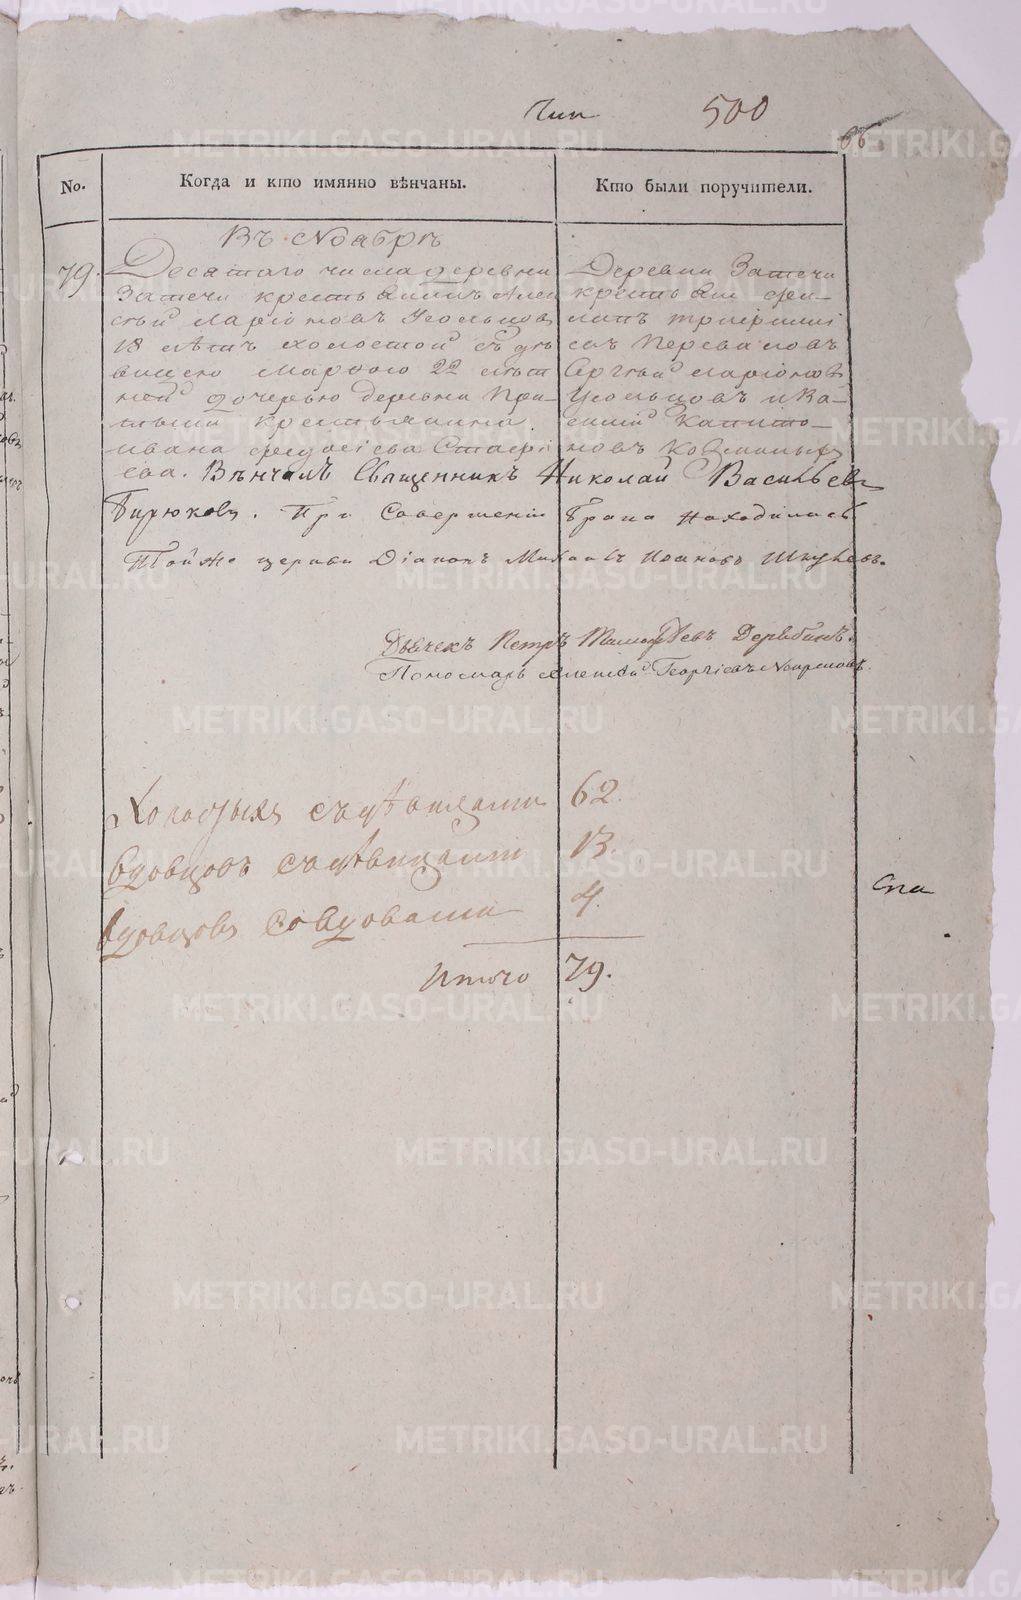 Чип 500
66
No. Когда и кто имянно вѣнчаны. Кто были поручители.
Въ Ноябрѣ
79. Десятаго числа деревни
Затечи крестьянинъ Алек
сѣй Ларіоновъ Усольцовъ
18 лѣтъ холостой съ дѣ
вицею Марѳою 22 лѣт
ней дочерью деревни
крестьянина
Ивана
ева. Вѣнчалъ Священникъ Николай Васильевъ
Бирюковъ. При Совершеніи Брака находились
Той же церкви Діаконъ Михаилъ Иоанновъ
Деревни Затечи
крестьяне
сынъ Переваловъ
Сергѣй Ларіоновъ
Усольцовъ и Ва-
силій Капито-
новъ
Дьячекъ Петръ Тимофѣевъ Дерябинъ.
Пономарь Алексѣй Георгіевъ
Холостыхъ съ дѣвицами 62.
Вдовцовъ съ дѣвицами 13.
Вдовцовъ со вдовами 4.
Итого 79.
Спа
METRIKI.GASO-URAL.RU